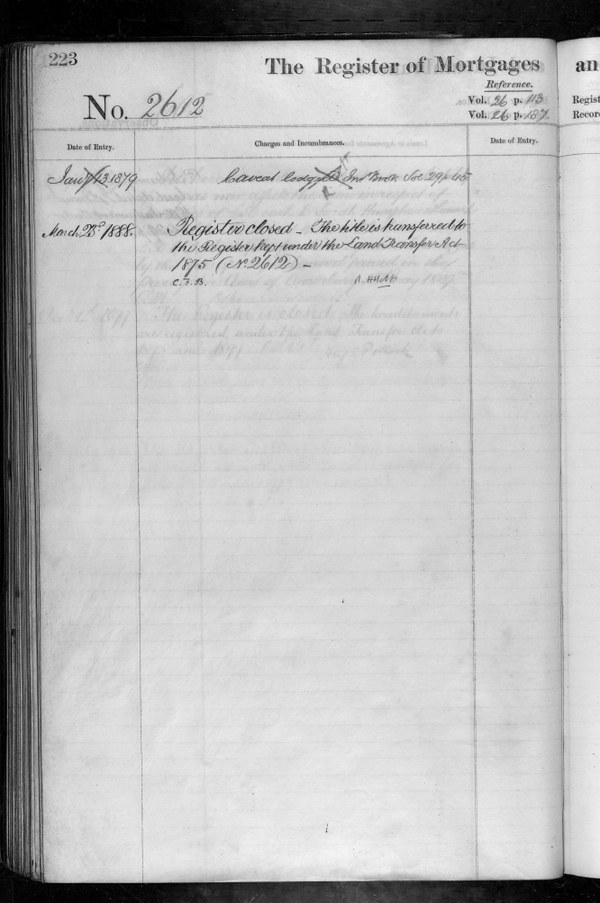 223
The Register of Mortgages
an
Reference.
No. 2612
Vol. 26 p. 113
Vol. 26 p. 187.
Regist
Recor
Date of Entry.
Charges and Incumbrances.
Date of Entry.
Jany 13 1879
Caveat lodged Inst Book Vol 29 p 45
March 23rd 1888.
Register closed – The title is transferred to
the Register kept under the Land Transfer Act
1875 (No. 2612) –
C.F.B.